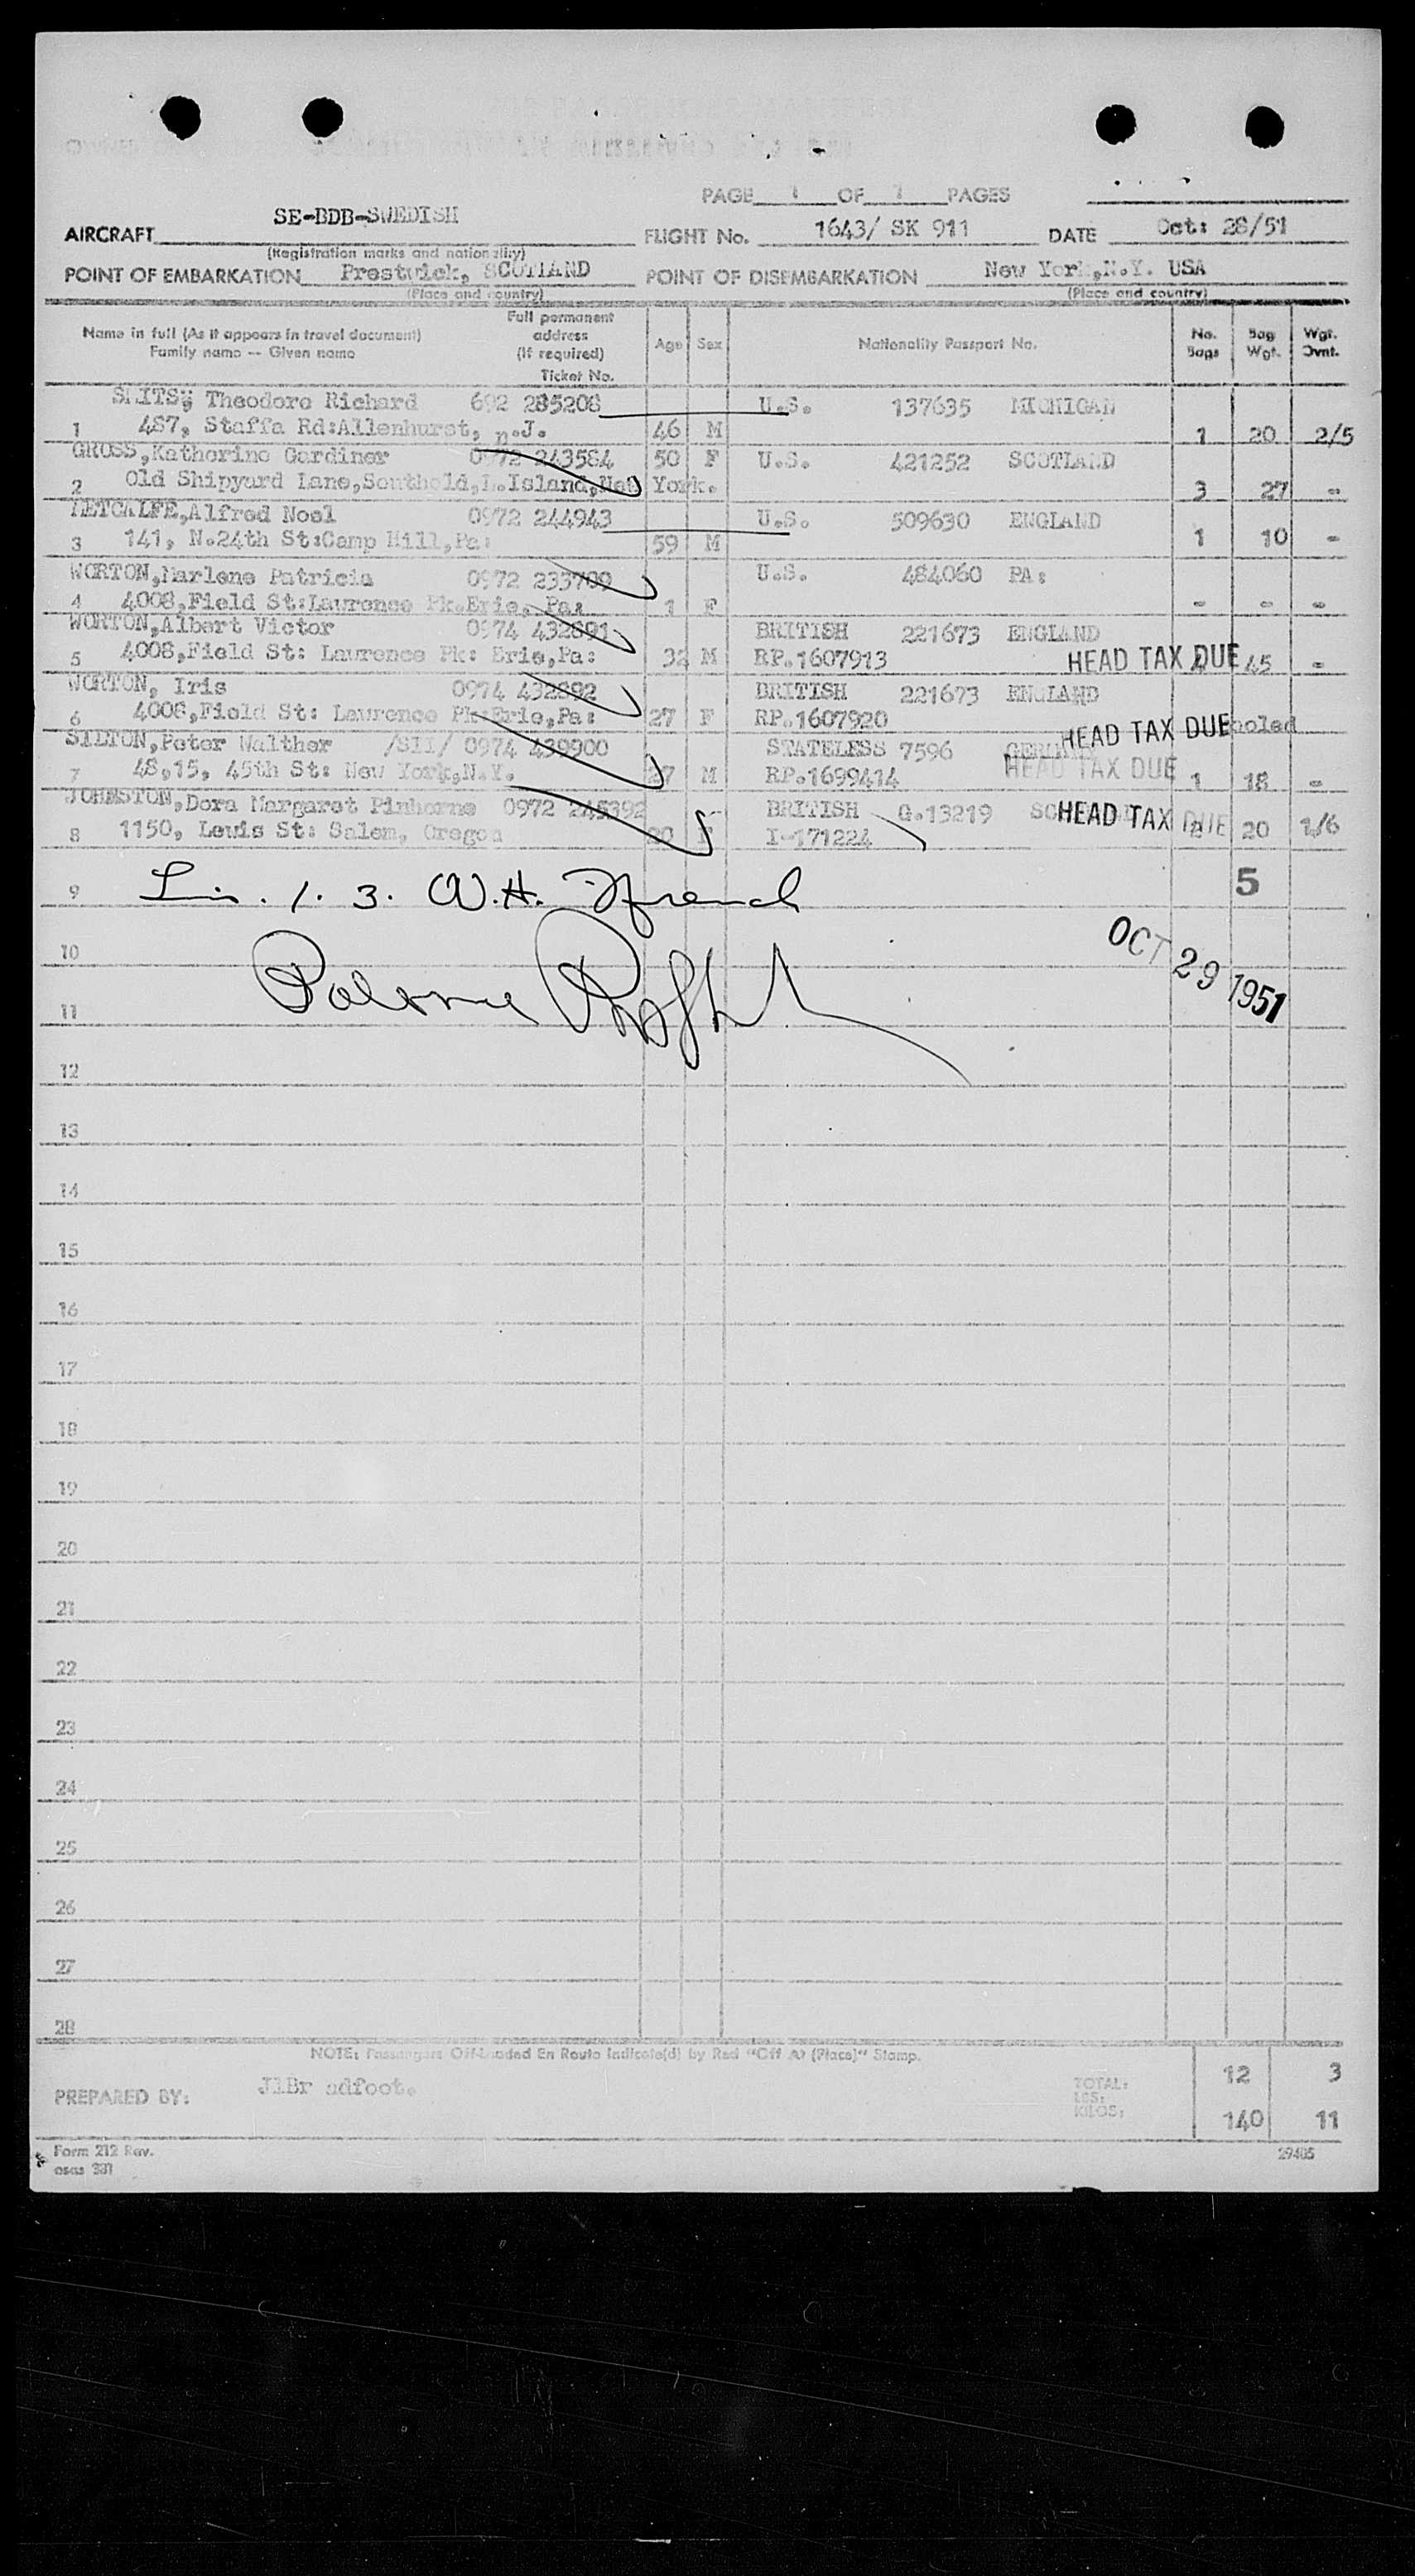 PAGE 1 OF 1 PAGES
AIRCRAFT SE-BDB-SWEDISH FLIGHT No. 1643/ SK 911 DATE Oct: 28/51
(Registration marks and nationality)
POINT OF EMBARKATION Prestwick, SCOTLAND POINT OF DISEMBARKATION New York,N.Y. USA
(Place and country) (Place and country)
Name in full (As it appears in travel document) Full permanent address (If required) Age Sex Nationality Passport No. No. Bags Bag Wgt. Wgt. Ovnt.
Family name -- Given name Ticket No.
SMITS, Theodore Richard 692 285208 U.S. 137635 MICHIGAN
1 487, Staffa Rd:Allenhurst, n.J. 46 M 1 20 2/5
GROSS,Katherine Gardiner 0972 243584 50 F U.S. 421252 SCOTLAND
2 Old Shipyard Lane,Southold,L.Island,New York. 3 27 -
METCALFE,Alfred Noel 0972 244943 U.S. 509630 ENGLAND
3 141, N.24th St:Camp Hill,Pa: 59 M 1 10 -
WORTON,Marlene Patricia 0972 233709 U.S. 484060 PA:
4 4008,Field St:Lawrence Pk.Erie, Pa: 1 F - - -
WORTON,Albert Victor 0974 432891 BRITISH 221673 ENGLAND
5 4008,Field St: Lawrence Pk: Erie,Pa: 32 M RP.1607913 HEAD TAX DUE 45 -
WORTON, Iris 0974 432892 BRITISH 221673 ENGLAND
6 4008,Field St: Lawrence Pk:Erie,Pa: 27 F RP.1607920 HEAD TAX DUE
SILTON,Peter Walther /SII/ 0974 439900 STATELESS 7596
7 48,15, 45th St: New York,N.Y. 27 M RP.1699414 HEAD TAX DUE 1 18 -
JOHNSTON,Dora Margaret Pinhorne 0972 245392 BRITISH G.13219 HEAD TAX DUE
8 1150, Lewis St: Salem, Oregon I-171224 20 1/6
9 Lin. 1. 3. W.H. French 5
10 OCT 29 1951
11
12
13
14
15
16
17
18
19
20
21
22
23
24
25
26
27
28
NOTE: Passengers Off-Loaded En Route Indicate(d) by Red "Off At (Place)" Stamp.
PREPARED BY: JlBr adfoot. TOTAL: 12 3
LBS:
KILOS: 140 11
Form 212 Rev. 29405